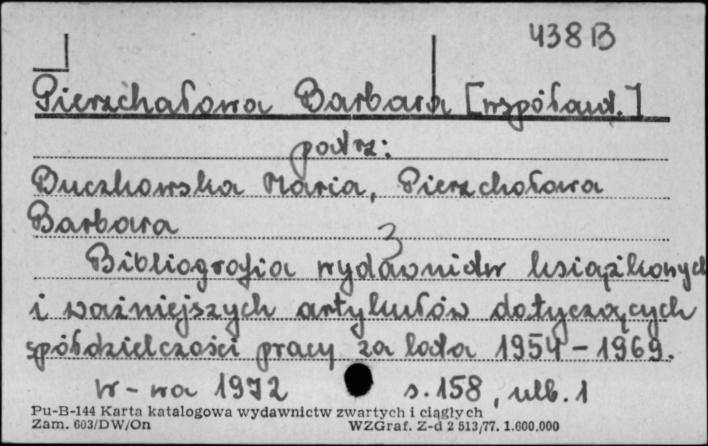 438 B
Pierzchałowa Barbara [współaut.]
patrz:
Buczkowska Maria, Pierzchałowa
Barbara
Bibliografia wydawnictw książkowych
i ważniejszych artykułów dotyczących
spółdzielczości pracy za lata 1954-1969.
W-wa 1972 s. 158, nlb. 1
Pu-B-144 Karta katalogowa wydawnictw zwartych i ciągłych
Zam. 603/DW/On WZGraf. Z-d 2 513/77. 1.600.000